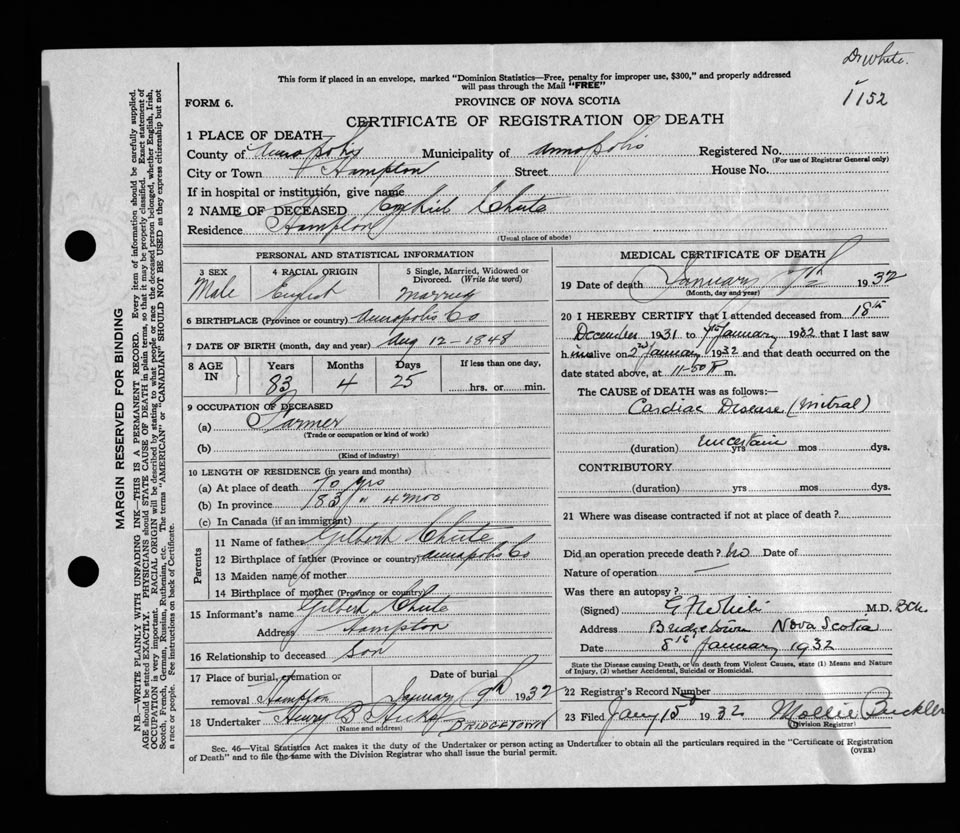 Dr White.
1152
This form if placed in an envelope, marked "Dominion Statistics—Free, penalty for improper use, $300," and properly addressed
will pass through the Mail "FREE"
FORM 6.
PROVINCE OF NOVA SCOTIA
CERTIFICATE OF REGISTRATION OF DEATH
1 PLACE OF DEATH
County of Annapolis Municipality of Annapolis Registered No.
(For use of Registrar General only)
City or Town Hampton Street House No.
If in hospital or institution, give name
2 NAME OF DECEASED Ezekiel Chute
Residence Hampton
(Usual place of abode)
PERSONAL AND STATISTICAL INFORMATION
3 SEX 4 RACIAL ORIGIN 5 Single, Married, Widowed or Divorced. (Write the word)
Male English Married
6 BIRTHPLACE (Province or country) Annapolis Co
7 DATE OF BIRTH (month, day and year) Aug 12 - 1848
8 AGE IN Years Months Days If less than one day,
83 4 25 hrs. or min.
9 OCCUPATION OF DECEASED
(a) Farmer
(Trade or occupation or kind of work)
(b)
(Kind of industry)
10 LENGTH OF RESIDENCE (in years and months)
(a) At place of death 70 yrs
(b) In province 83 " 4 mos
(c) In Canada (if an immigrant)
Parents
11 Name of father Gilbert Chute
12 Birthplace of father (Province or Country) Annapolis Co
13 Maiden name of mother
14 Birthplace of mother (Province or country)
15 Informant's name Gilbert Chute
Address Hampton
16 Relationship to deceased Son
17 Place of burial, cremation or removal Hampton
Date of burial January 9th 1932
18 Undertaker Henry B Hicks BRIDGETOWN
(Name and address)
MEDICAL CERTIFICATE OF DEATH
19 Date of death January 7th 1932
(Month, day and year)
20 I HEREBY CERTIFY that I attended deceased from 18th
December 1931 to 7th January 1932 that I last saw
him alive on 2nd January 1932 and that death occurred on the
date stated above, at 11-50 P m.
The CAUSE OF DEATH was as follows:
Cardiac Disease (Mitral)
(duration) uncertain yrs mos dys.
CONTRIBUTORY
(duration) yrs mos dys.
21 Where was disease contracted if not at place of death?
Did an operation precede death? no Date of
Nature of operation —
Was there an autopsy?
(Signed) M.D. B.Ch.
Address Bridgetown Nova Scotia
Date 8th January 1932
State the Disease causing Death, or in death from Violent Causes, state (1) Means and Nature
of Injury, (2) whether Accidental, Suicidal or Homicidal.
22 Registrar's Record Number
23 Filed Jany 15th 1932 Mollie Buckler
Division Registrar)
Sec. 46—Vital Statistics Act makes it the duty of the Undertaker or person acting as Undertaker to obtain all the particulars required in the "Certificate of Registration
of Death" and to file the same with the Division Registrar who shall issue the burial permit.
(OVER)
MARGIN RESERVED FOR BINDING
N.B.—WRITE PLAINLY WITH UNFADING INK—THIS IS A PERMANENT RECORD. Every item of information should be carefully supplied.
AGE should be stated EXACTLY. PHYSICIANS should STATE CAUSE OF DEATH in plain terms, so that it may be properly classified. Exact statement of
OCCUPATION is very important. RACIAL ORIGIN will be described by stating to what people or race the deceased person belonged, whether English, Irish,
Scotch, French, German, Russian, Ruthenian, etc. The terms "AMERICAN" or "CANADIAN" SHOULD NOT BE USED as they express citizenship but not
a race or people. See instructions on back of Certificate.